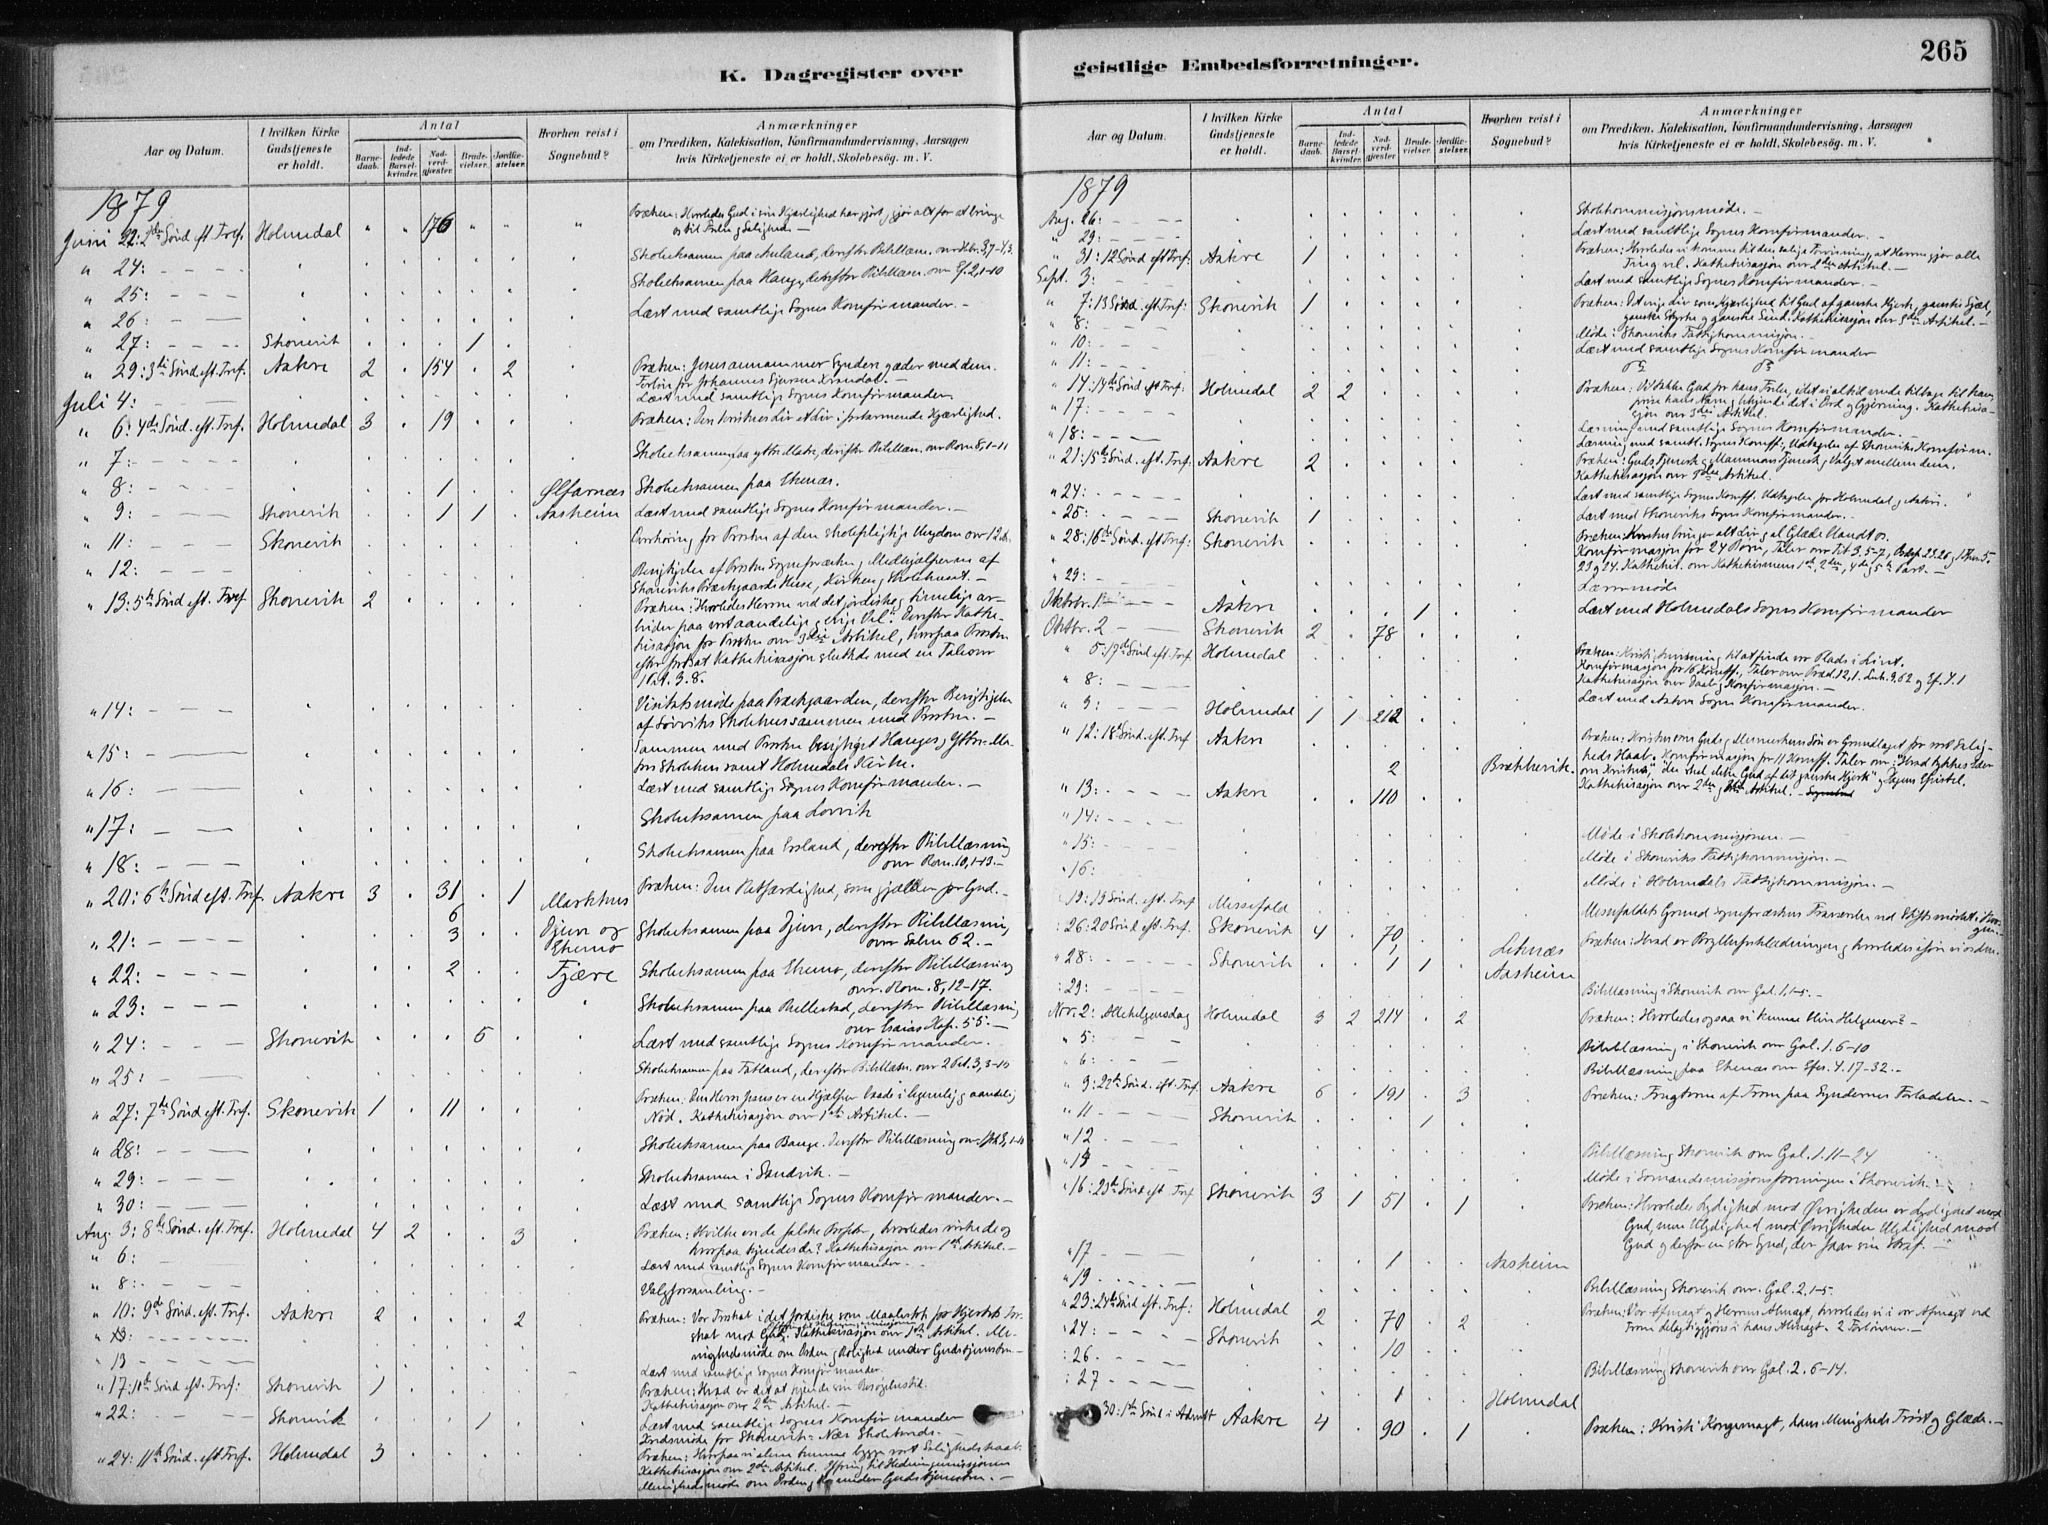 K. Dagregister over
Aar og Datum.
I hvilken Kirke Gudstjeneste er holdt.
Antal
Barnedaab.
Indledede Barselkvinder.
Nadverdgjæster.
Brudevielser.
Jordfæstelser.
Hvorhen reist i Sognebud?
Anmærkninger
om Prædiken, Katekisation, Konfirmandundervisning, Aarsagen
hvis Kirketjeneste ei er holdt, Skolebesög. m. V.
1879
Juni 22: 2den Sönd. eft. Tref. Holmedal " " 176 " " " Præken: Hvorledes Gud i sin Kjærlighed har gjort, gjör alt for at bringe
os til Frelse og Salighed —
" 24: Skoleeksamen paa
" 25: Skoleeksamen paa Hauge, derefter Bibellæsn. over Ef. 2, 1-10
" 26: Læst med samtlige Sognes Konfirmander. —
" 27: Skonevik 1
" 29: 3die Sönd. eft. Tref. Aakre 2 154 2 Præken: Jesus annammer Syndere, æder med dem.
Læst med samtlige Sognes Konfirmander
Juli 4:
" 6: 4de Sönd. eft. Tref. Holmedal 3 19 Præken: Den Kristnes Liv et Liv i forbarmende Kjærlighed.
" 7: Skoleeksamen paa ytre Matre, derefter Bibellæsn. over Rom. 8, 1-11
" 8: 1 Ølfarnæs Skoleeksamen paa Ekenæs.
" 9: Skonevik 1 1 Aasheim Læst med samtlige Sognes Konfirmander. —
" 11: Skonevik Overhöring for Provsten af den skolepligtige Ungdom over 12 Aar
" 12: Besigtigelse af Provsten, Sognepræsten og Medhjælperne af
Skoneviks Præstegaards Huse, Kirken og Skolehuset. —
" 13: 5te Sönd. eft. Tref. Skonevik 2 Præken: "Hvorledes Herren ved det jordiske og timelige ar-
beider paa vort aandelige og evige Vel". Derefter Kathe-
kisasjon for Provsten over 3die Artikel, hvorpaa Provsten
efter fortsat Kathekisasjon sluttede med en Tale over
1 Pet. 3. 8.
" 14: Visitatsmöde paa Præstegaarden, derefter Besigtigelse
af Sörviks Skolehus sammen med Provsten. —
" 15: Sammen med Provsten besigtiget Hauges og Ytre-Ma-
tres Skolehus samt Holmedals Kirke.
" 16: Læst med samtlige Sognes Konfirmander. —
" 17: Skoleeksamen paa
" 18: Skoleeksamen paa Ersland, derefter Bibellæsning
over Rom. 10, 1-13. —
" 20: 6te Sönd eft. Tref. Aakre 3 31 1 Markhus Præken: Den Retfærdighed, som gjælder for Gud. —
6
" 21: 3 Djuve og Ekemo Skoleeksamen paa Djuve, derefter Bibellæsning
over Salm 62. —
" 22: 2 Fjære Skoleeksamen paa Ekemo, derefter Bibellæsning
over Rom. 8, 12-17.
" 23: Skoleeksamen paa Rullestad, derefter Bibellæsning
over Esaias Kap. 55. —
" 24: Skonevik 5 Læst med samtlige Sognes Konfirmander. —
" 25: Skoleeksamen paa Fatland, derefter Bibellæsn. over 2 Pet. 3, 3-10
" 27: 7de Sönd. eft. Tref. Skonevik 1 11 Præken: Den Herre Jesus er en Hjælper baade i legemlig og aandelig
Nöd. Kathekisasjon over 1ste Artikel. —
" 28: Skoleeksamen paa Bauge. Derefter Bibellæsning over
" 29: Skoleeksamen i Sandvik. —
" 30: Læst med samtlige Sognes Konfirmander. —
Aug. 3: 8de Sönd. eft. Tref. Holmedal 4 2 3 Præken: Hvilke ere de falske Profeter, hvorledes virke de og
hvorpaa kjendes de? Kathekisasjon over 1ste Artikel. —
" 6: Læst med samtlige Sognes Konfirmander. —
" 8: Valgforsamling. —
" 10: 9de Sönd. eft. Tref. Aakre 2 2 Præken: Vor Troskab i det Jordiske som Maalestok for Hjertets Tro-
skab mod Gud. Kathekisasjon over 1ste Artikel. Me-
nighedsmöde om Orden og Rolighed under Gudstjenesten —
" 13:
" 13 Læst med samtlige Sognes Konfirmander.
" 17: 10de Sönd eft. Tref: Skonevik 1 Præken: Hvad er det at kjende sin Besögelsestid.
Kathekisasjon over 2den Artikel. —
" 22: Skonevik 1 Læst med samtlige Sognes Konfirmander
Kredsmöde for Skonevik-
" 24: 11te Sönd. eft Tref. Holmedal 3 Præken: Hvorpaa vi alene kunne bygge vort Saligheds Haab.
Kathekisasjon over 2den Artikel. Ofring til Hedningemissionen
Menighedsmöde om Orden og Ro under Gudstjenesten. —
geistlige Embedsforretninger.
265
Aar og Datum.
I hvilken Kirke Gudstjeneste er holdt.
Antal
Barnedaab.
Indledede Barselkvinder.
Nadverdgjæster.
Brudevielser.
Jordfæstelser.
Hvorhen reist i Sognebud?
Anmærkninger
om Prædiken, Katekisation, Konfirmandundervisning, Aarsagen
hvis Kirketjeneste ei er holdt, Skolebesög. m. V.
1879
Aug. 26: Skolekommisjonsmöde. —
" 29: Læst med samtlige Sognes Konfirmander. —
" 31: 12 Sönd eft Tref: Aakre 1 Præken: Hvorledes vi komme til den salige Forvisning, at Herren gjör alle
Ting vel. Kathekisasjon over 2den Artikel. —
Sept. 3: Læst med samtlige Sognes Konfirmander. —
" 7: 13 Sönd eft. Tref: Skonevik 1 Præken: Det evige Liv som Kjærlighed til Gud af ganske Hjerte, ganske Sjæl,
ganske Styrke og ganske Sind. Kathekisasjon over 3die Artikel. —
" 8: Möde i Skoneviks Fattigkommisjon. —
" 10: Læst med samtlige Sognes Konfirmander
" 11:
" 14: 14de Sönd eft. Tref: Holmedal 2 2 Præken: Vi takke Gud for hans Frelse, idet vi altid vende tilbage til ham,
prise hans Navn og lovprise det i Ord og Gjerning. Kathekisa-
sjon over 3die Artikel.
" 17: Læsning med samtlige Sognes Konfirmander. —
" 18: Læsning med samtl. Sognes Konff. Udtagelse af Skoneviks Konfirm.
" 21: 15de Sönd. eft. Tref. Aakre 2 Præken: Guds Tjeneste og Mammons Tjeneste, Valget mellem dem.
Kathekisasjon over 3die Artikel.
" 24: Læst med samtlige Sognes Konff. Udtagelse for Holmedal og Aakre.
" 25: Skonevik 1 Læst med Skoneviks Sogns Konfirmander. —
" 28: 16de Sönd. eft. Tref: Skonevik Præken: Kristus bringer alt Liv og al Glæde
Konfirmasjon for 24 Börn, Taler over Tit. 3, 5-7,
23 og 24. Kathekis. over Kathekismens 1ste, 2den, 4de og 5te Part. —
" 29: Læremöde
Oktbr. 1 Aakre 1 Læst med Holmedals Sogns Konfirmander
Oktbr. 2 Skonevik 2 78
" 5: 17de Sönd eft. Tref. Holmedal Præken: Kristi Anvisning til at finde vor Plads i Livet.
Konfirmasjon for 16 Konff., Taler over Præd. 12, 1. Luk. 9, 62 og Ef. 4. 1
Kathekisasjon over Daab og Konfirmasjon. —
" 8: Læst med Aakre Sogns Konfirmander.
" 9: Holmedal 1 1 212
" 12: 18de Sönd. eft. Tref Aakre Præken: Kristus som Guds og Menneskens Sön er Grundlaget for vort Salig-
heds Haab. Konfirmasjon for 11 Konff. Taler over: "Hvad tykkes Eder
om Kristus", "Du skal elske Gud af dit ganske Hjerte" og Dagens Epistel.
Kathekisasjon over 2den og 3die Artikel. —
2 Brækkevik.
" 13: Aakre 110
" 14: Möde i Skolekommisjonen. —
" 15: Möde i Skoneviks Fattigkommisjon. —
" 16: Möde i Holmedals Fattigkommisjon. —
" 19: 19 Sönd. eft. Tref Messefald Messefaldets Grund Sognepræstens Fraværelse ved Stiftsmödet i Ber-
gen. —
: 26: 20 Sönd eft. Tref. Skonevik 4 70 Præken: Hvad er Bryllupsklædningen, og hvorledes iföre vi os den.
" 28: Skonevik 1 1 1 Leknæs Aasheim
: 29: Bibellæsning i Skonevik over Gal. 1, 1-5. —
Nov. 2: Allehelgensdag Holmedal 3 2 214 2 Præken: Hvorledes ogsaa vi kunne blive Helgener? —
" 5: Bibellæsning i Skonevik over Gal. 1. 6-10
" 6: Bibellæsning paa Ekenæs over Efes. 4. 17-32. —
" 9: 22de Sönd. eft. Tref. Aakre 6 191 3 Præken: Frugterne af Troen paa Syndernes Forladelse. —
" 11 Skonevik 1
" 12 Bibellæsning Skonevik over Gal. 1. 11-24
" 13 Möde i Sömandsmissionsforeningen i Skonevik. —
" 16: 23de Sönd eft. Tref Skonevik 3 1 51 1 Præken: Hvorledes Lydighed mod Övrigheden er Lydighed mod
Gud, men Ulydighed mod Övrigheden Ulydighed mod
Gud og derfor en stor Synd, der faar sin Straf. —
" 17 1 Aasheim
" 19 Bibellæsning Skonevik over Gal. 2. 1-5.
" 23: 24de Sönd eft. Tref: Holmedal 2 70 2 Præken: Vor Afmagt og Herrens Almagt, hvorledes vi i vor Afmagt ved
Troen delagtiggjöres i hans Almagt. 2
" 24: Skonevik 10
: 26 Bibellæsning Skonevik over Gal. 2. 6-14.
: 27 1 Holmedal
30: 1ste Sönd i Advent Aakre 4 90 1 Præken: Kristi Kongemagt, hans Menigheds Tröst og Glæde. —